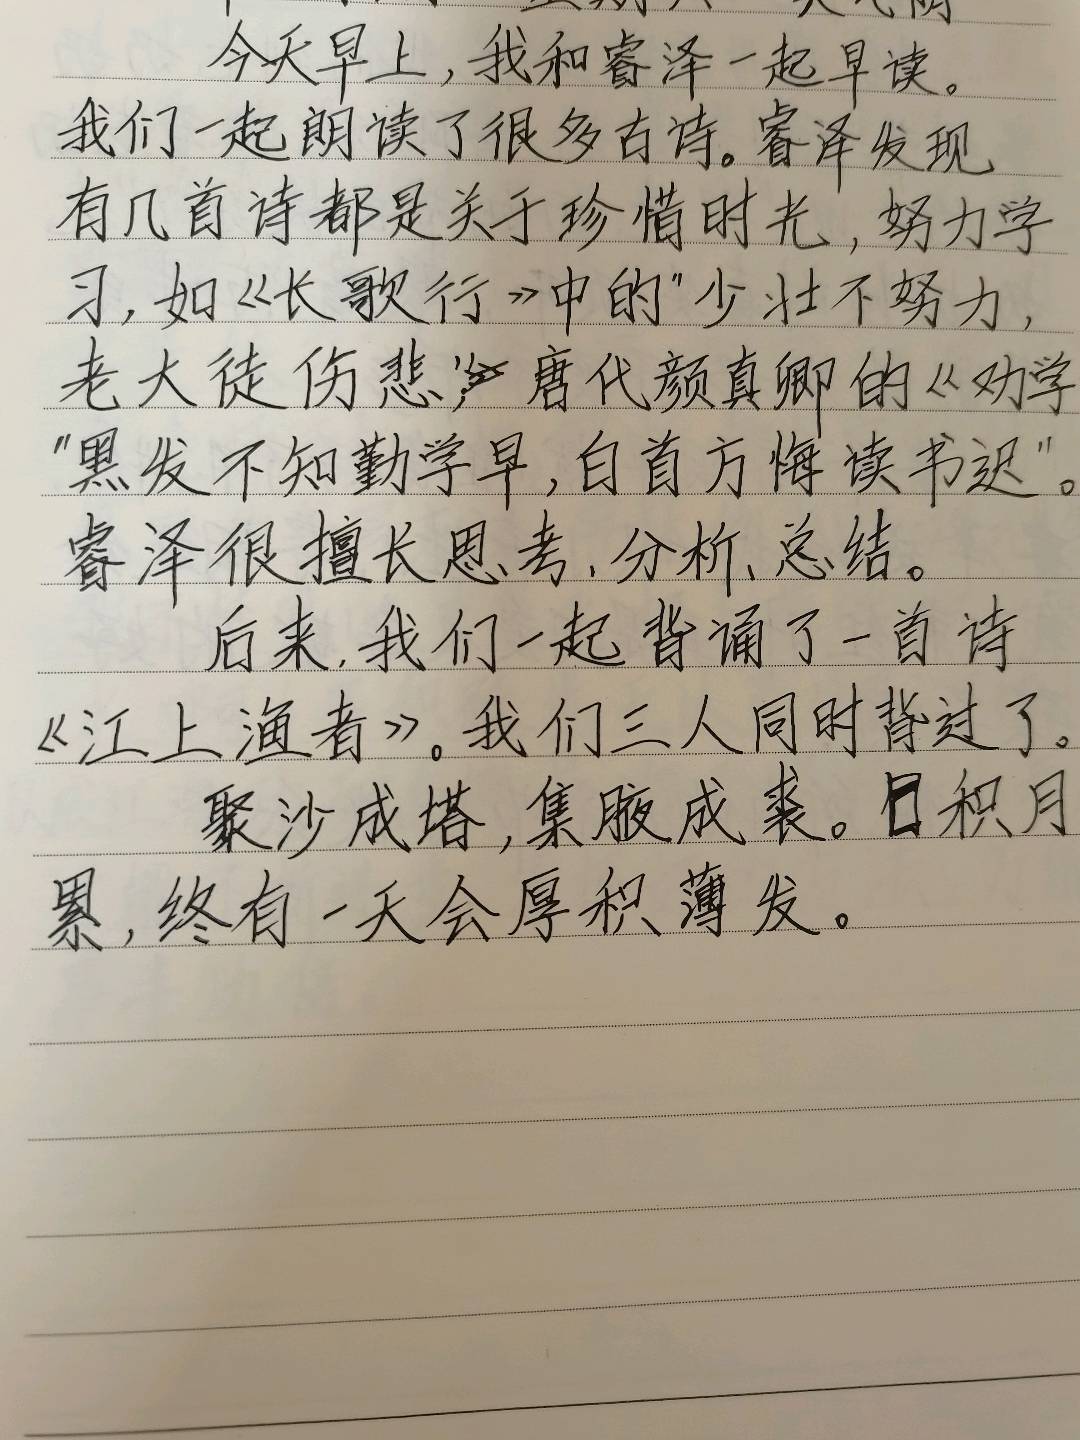 今天早上，我和睿泽一起早读。
我们一起朗读了很多古诗。睿泽发现
有几首诗都是关于珍惜时光，努力学
习，如《长歌行》中的"少壮不努力，
老大徒伤悲"；唐代颜真卿的《劝学
"黑发不知勤学早，白首方悔读书迟"。
睿泽很擅长思考、分析、总结。
后来，我们一起背诵了一首诗
《江上渔者》。我们三人同时背过了。
聚沙成塔，集腋成裘。日积月
累，终有一天会厚积薄发。